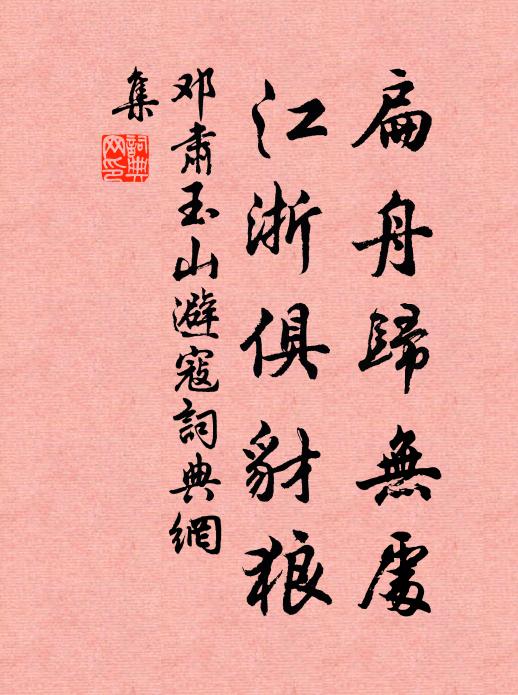 扁舟歸無處
江浙俱豺狼
邓肅玉山避寇詞典網
集
詞典
网印